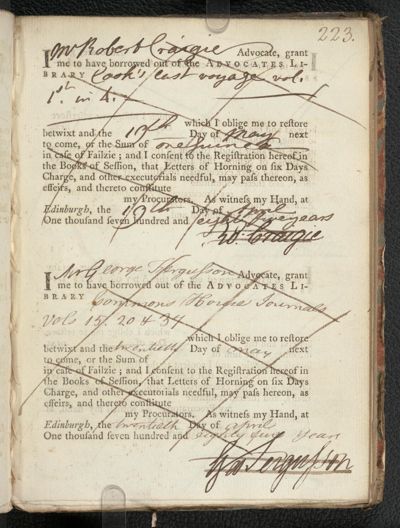 223.
I Mr Robert Craigie Advocate, grant
me to have borrowed out of the ADVOCATES LI-
BRARY Cook's last voyage vol.
1st. in 4.
which I oblige me to restore
betwixt and the 19th Day of May next
to come, or the Sum of one Guinea
in case of Failzie; and I consent to the Registration hereof in
the Books of Session, that Letters of Horning on six Days
Charge, and other executorials needful, may pass thereon, as
effeirs, and thereto constitute
my Procurators. As witness my Hand, at
Edinburgh, the 19th Day of April
One thousand seven hundred and eighty five years
Ro. Craigie
I Mr George Fergusson Advocate, grant
me to have borrowed out of the ADVOCATES LI-
BRARY Commons House Journals
vols 15. 20 & 34
which I oblige me to restore
betwixt and the twentieth Day of May next
to come, or the Sum of
in case of Failzie; and I consent to the Registration hereof in
the Books of Session, that Letters of Horning on six Days
Charge, and other executorials needful, may pass hereon, as
effeirs, and thereto constitute
my Procurators. As witness my Hand, at
Edinburgh, the twentieth Day of April
One thousand seven hundred and eighty five Years
Fergusson